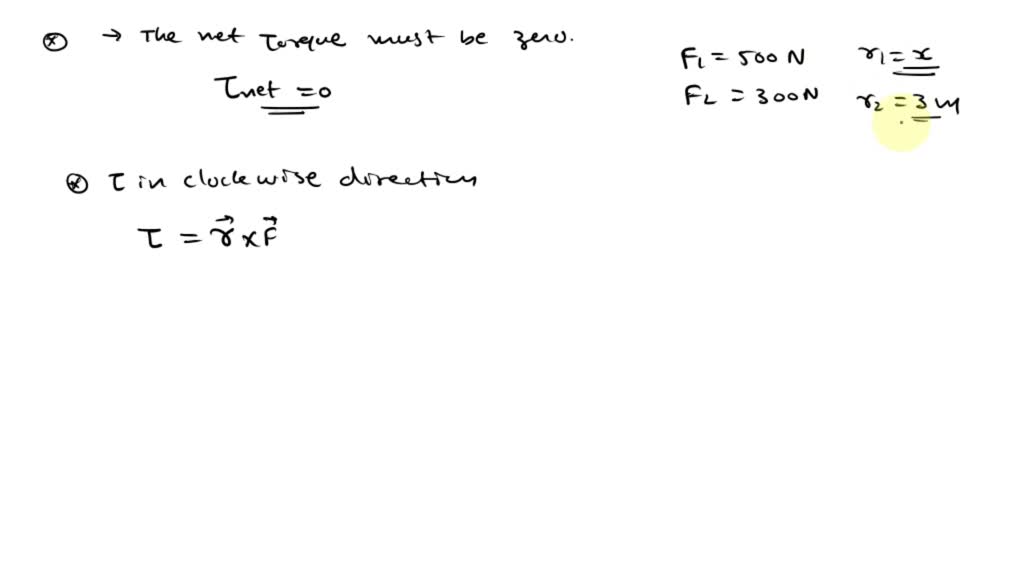 ⊗ → The net Torque must be zero.
τnet = 0
F1 = 500 N r1 = x
F2 = 300 N r2 = 3 m
⊗ τ in clockwise direction
τ = r⃗ x F⃗